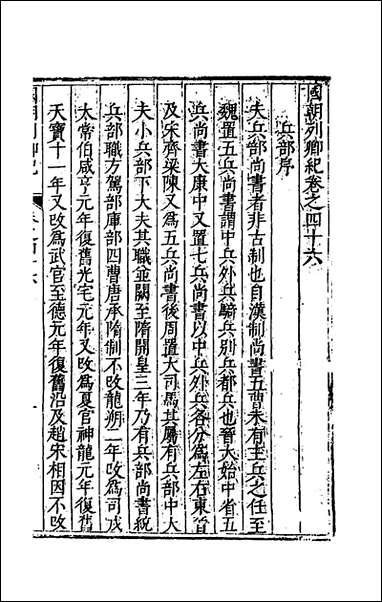 國朝列卿紀卷之四十六
兵部序
夫兵部尚書者非古制也自漢制尚書五曹未有主兵之任至
魏置五兵尚書謂中兵外兵騎兵別兵都兵也晉太始中省五
兵尚書大康中又置七兵尚書以中兵外兵各分為左右東晉
及宋齊梁陳又為五兵尚書後周置大司馬其屬有兵部中大
夫小兵部下大夫其職並闕至隋開皇三年乃有兵部尚書統
兵部職方駕部庫部四曹唐承隋制不改龍朔二年改為司戎
太常伯咸亨元年復舊光宅元年又改為夏官神龍元年復舊
天寶十一年又改為武官至德元年復舊沿及趙宋相因不改